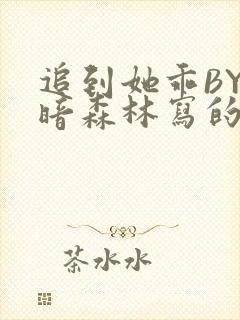 追到她乖BY
暗森林寫的
茶水水